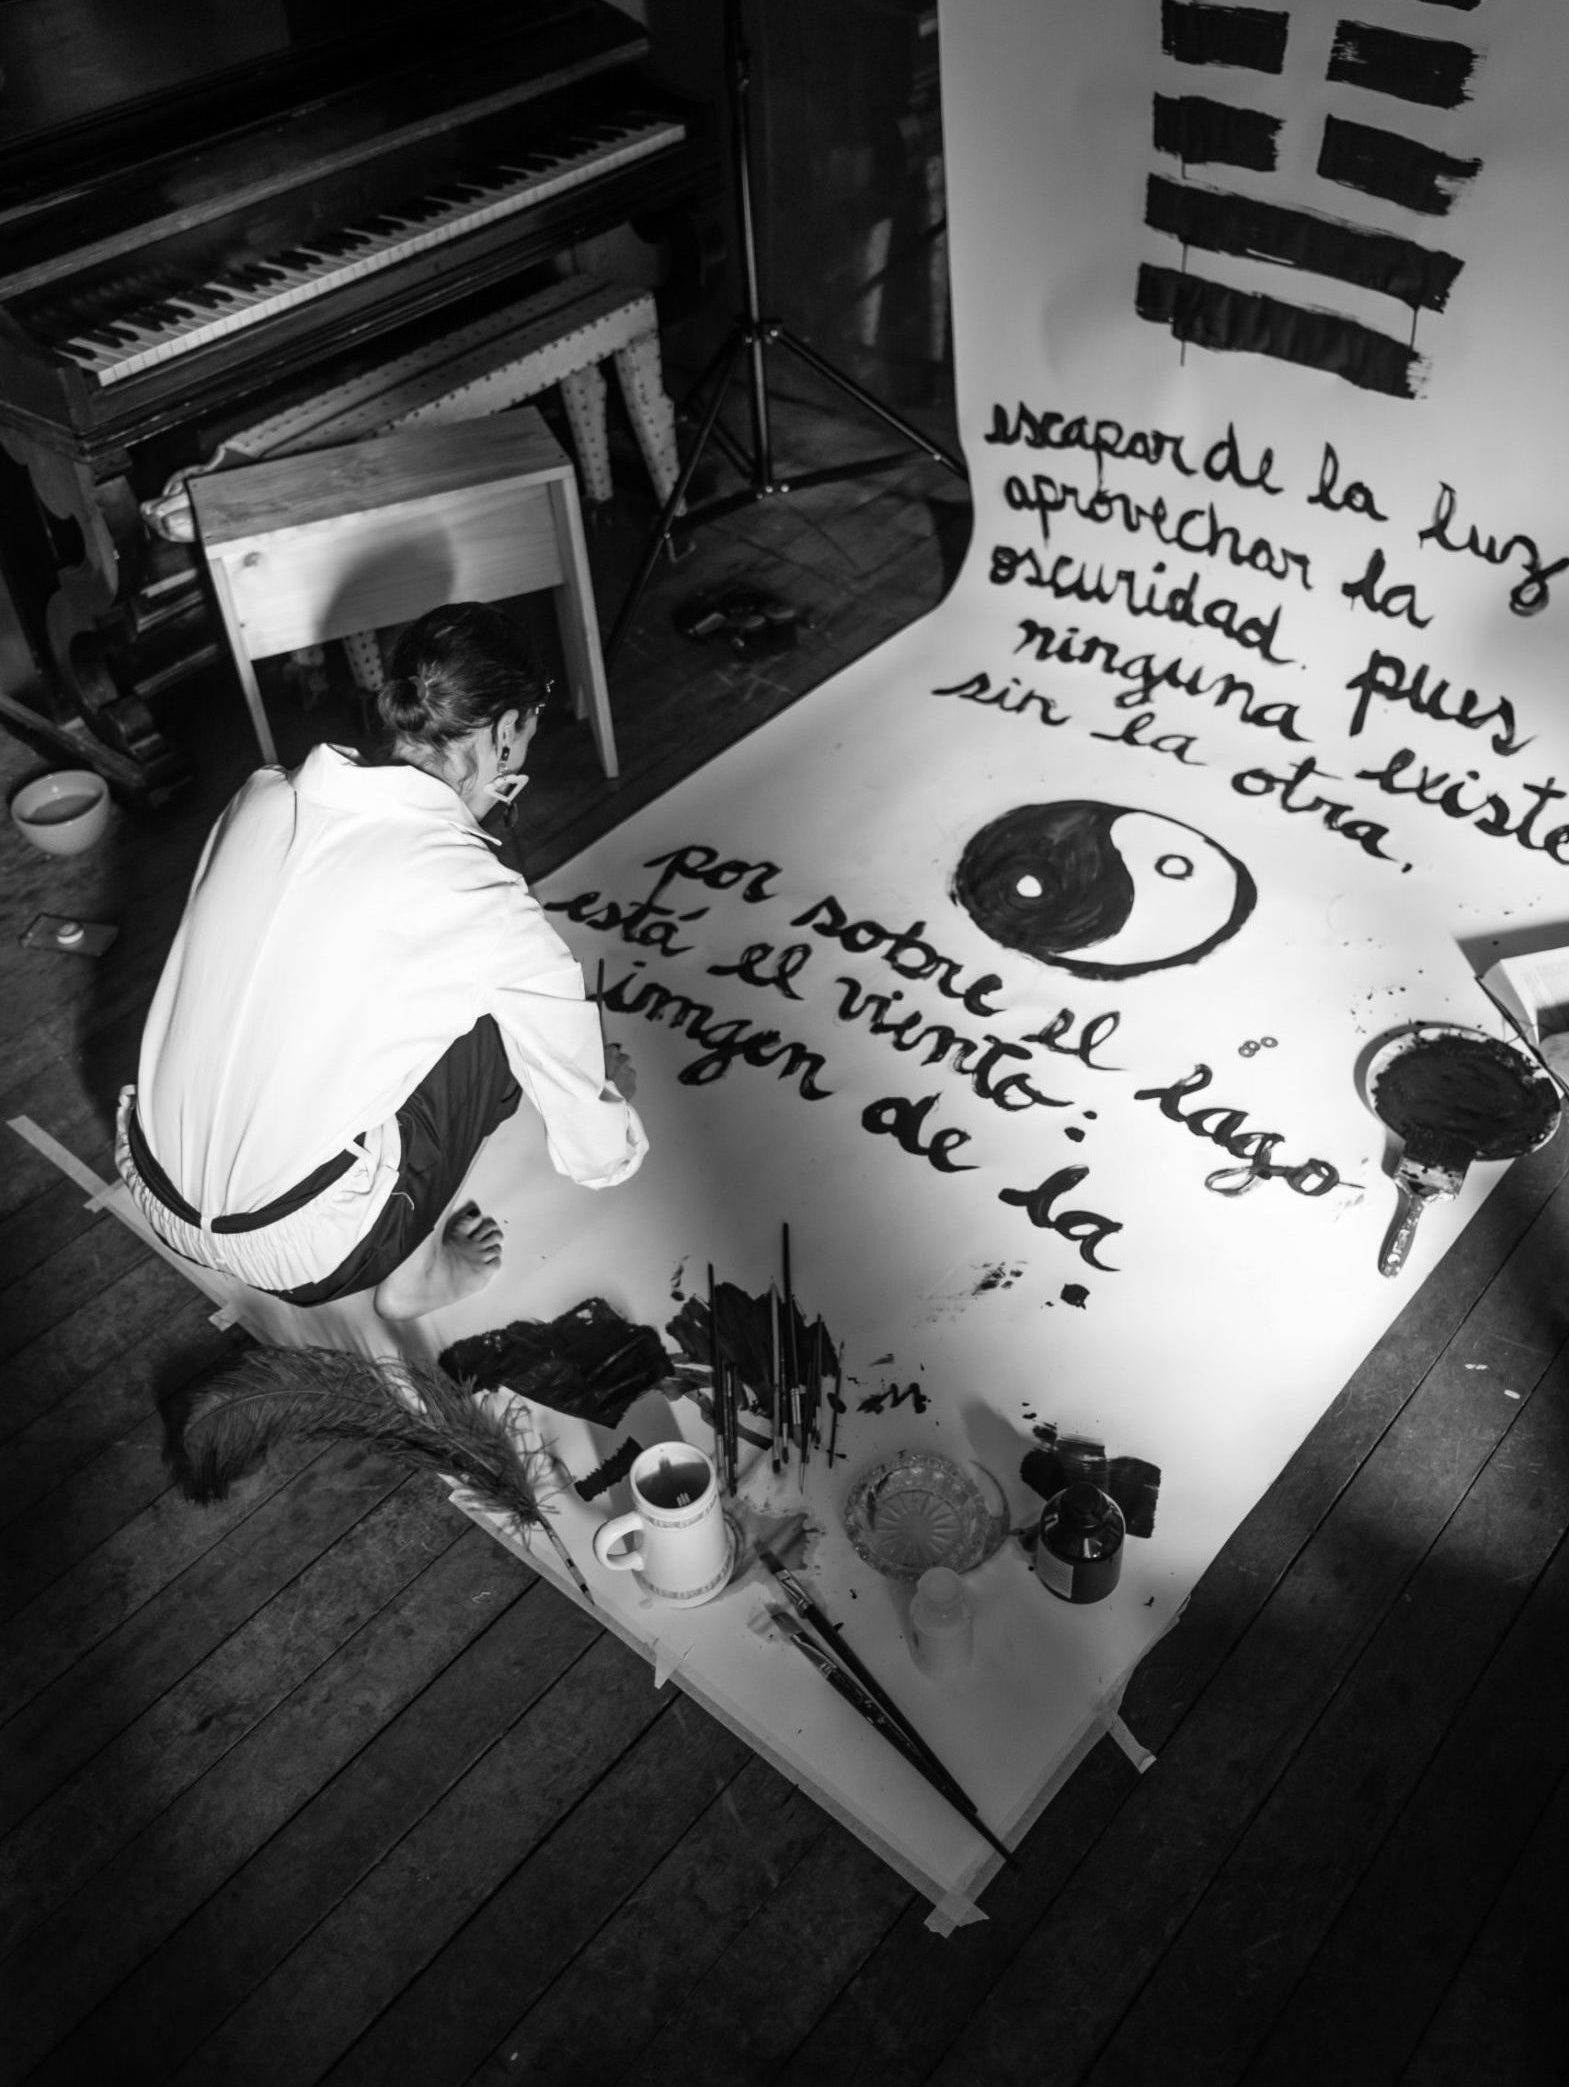 escapar de la luz
aprovechar la
oscuridad. pues
ninguna existe
sin la otra.
por sobre el lago
está el viento:
imgen de la